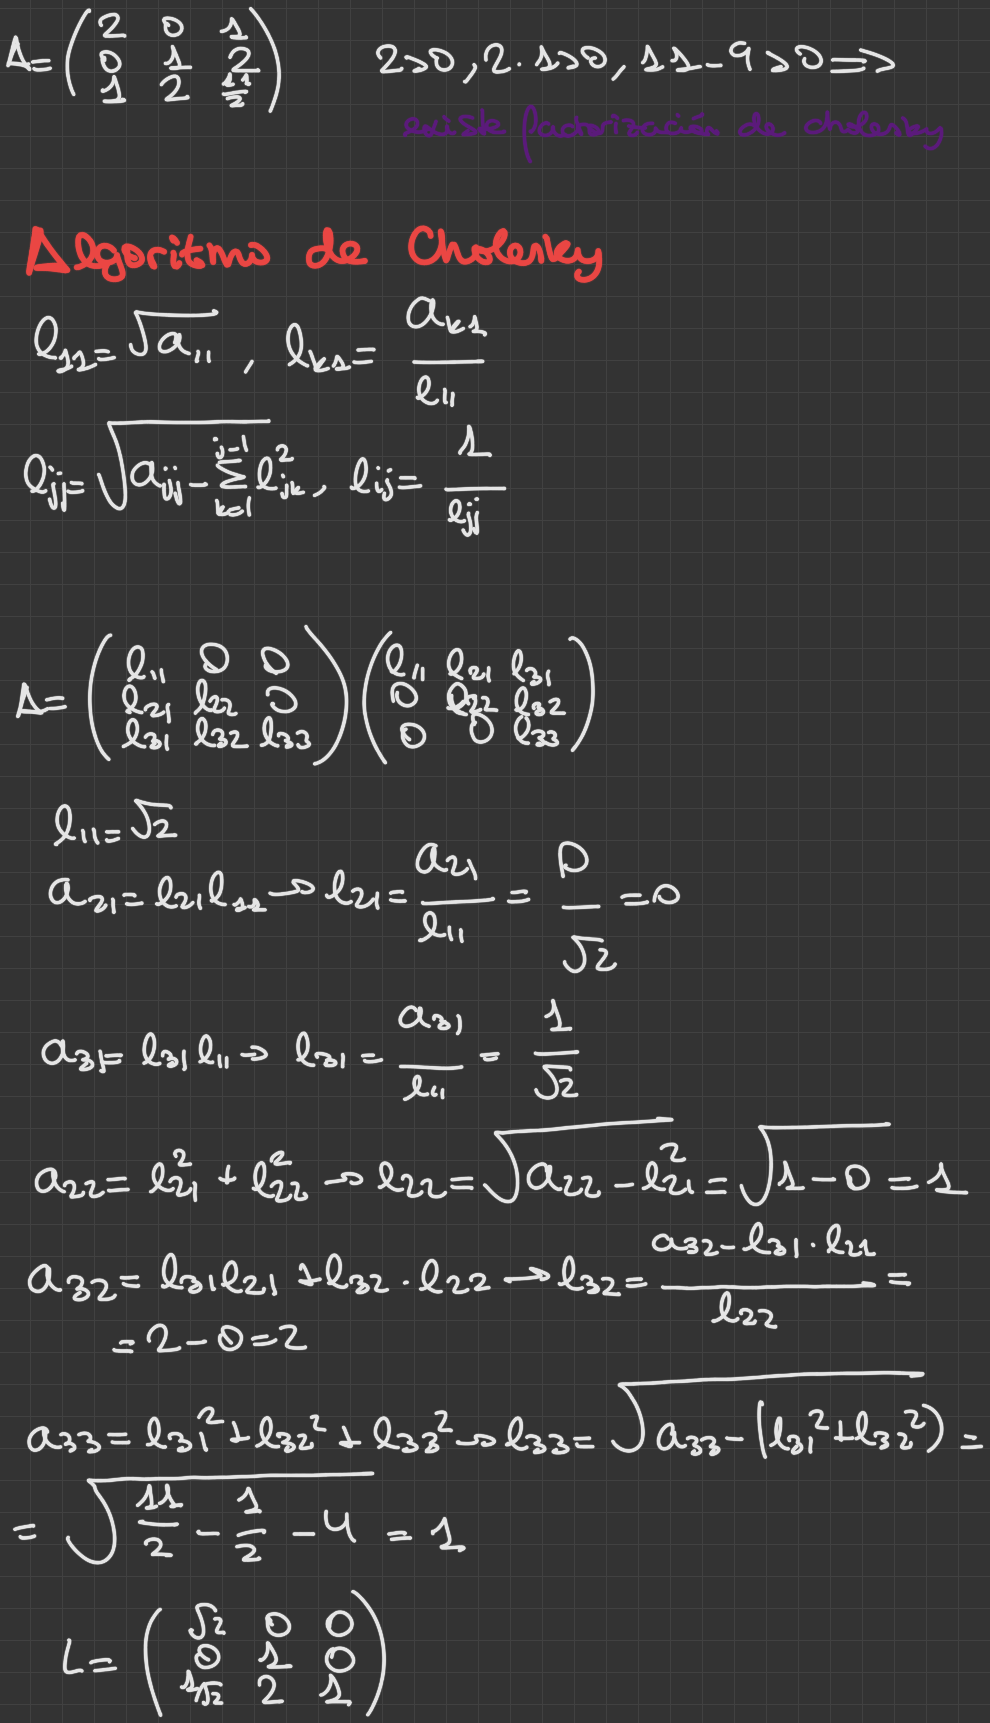 A = ( 2 0 1    2>0, 2·1>0, 11-9>0 ⇒
0 1 2
1 2 11/2 )
existe factorización de Cholesky
Algoritmo de Cholesky
l₁₁ = √a₁₁ , lₖ₁ = aₖ₁ / l₁₁
lⱼⱼ = √(aⱼⱼ - Σₖ₌₁ʲ⁻¹ lⱼₖ²), lᵢⱼ = 1 / lⱼⱼ
A = ( l₁₁ 0 0 ) ( l₁₁ l₂₁ l₃₁ )
l₂₁ l₂₂ 0    0 l₂₂ l₃₂
l₃₁ l₃₂ l₃₃    0 0 l₃₃
l₁₁ = √2
a₂₁ = l₂₁ l₁₁ → l₂₁ = a₂₁ / l₁₁ = 0 / √2 = 0
a₃₁ = l₃₁ l₁₁ → l₃₁ = a₃₁ / l₁₁ = 1 / √2
a₂₂ = l₂₁² + l₂₂² → l₂₂ = √(a₂₂ - l₂₁²) = √(1-0) = 1
a₃₂ = l₃₁ l₂₁ + l₃₂ · l₂₂ → l₃₂ = (a₃₂ - l₃₁ · l₂₁) / l₂₂ =
= 2 - 0 = 2
a₃₃ = l₃₁² + l₃₂² + l₃₃² → l₃₃ = √(a₃₃ - (l₃₁² + l₃₂²)) =
= √(11/2 - 1/2 - 4) = 1
L = ( √2 0 0
0 1 0
1/√2 2 1 )